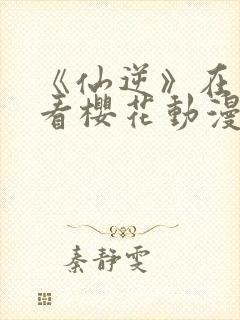 《仙逆》在
看樱花動漫
秦静雯